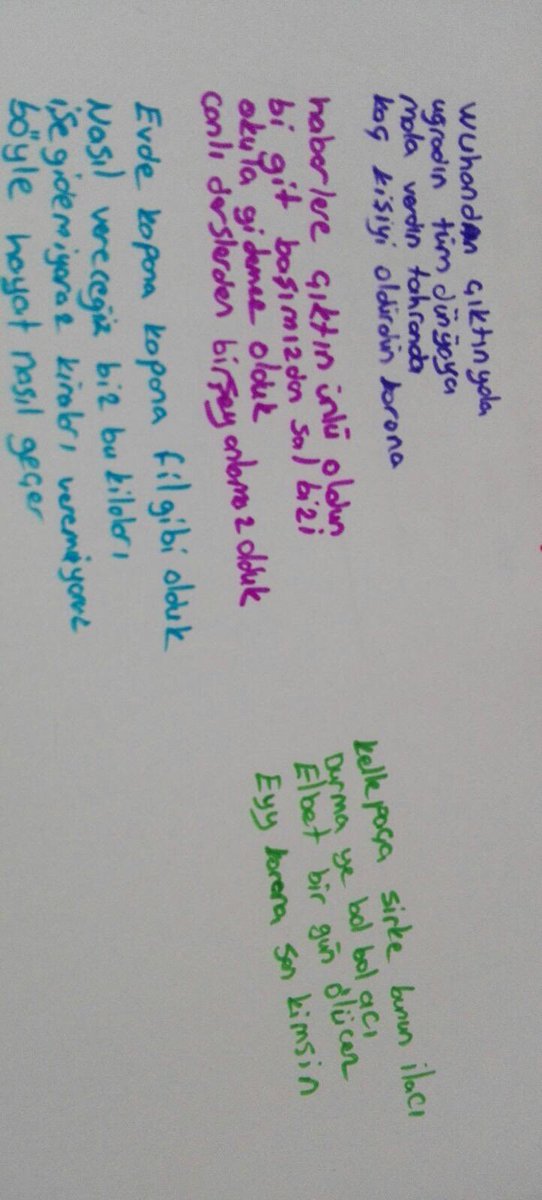 wuhandan çıktın yola
uğradın tüm dünyaya
mola verdin tahranda
kaç kişiyi öldürdün korona
haberlere çıktın ünlü oldun
bi git başımızdan sal bizi
okula gidemez olduk
canlı derslerden birşey anlamaz olduk
Evde kapana kapana fil gibi olduk
Nasıl vereceğiz biz bu kiloları
işe gidemiyoruz kiraları veremiyoruz
böyle hayat nasıl geçer
kelle paça sirke bunun ilacı
Durma ye bol bol acı
Elbet bir gün ölücez
Eyy korona sen kimsin